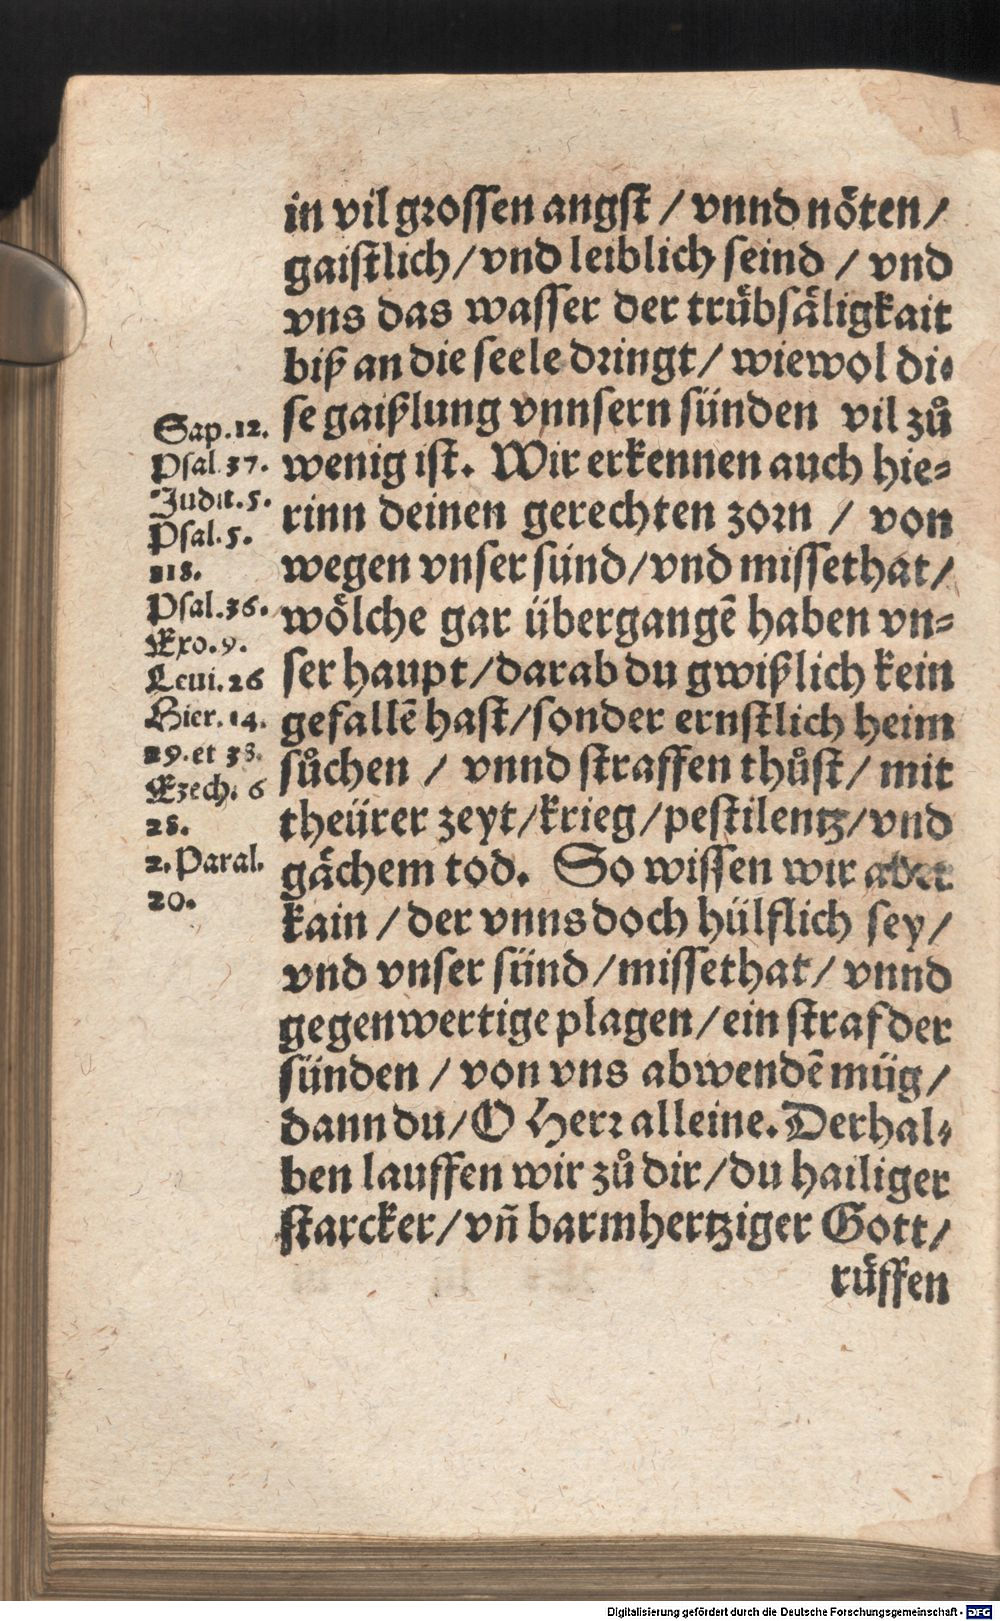 in vil grossen angst / vnnd nöten /
gaistlich / vnd leiblich seind / vnd
vns das wasser der trübsäligkait
biß an die seele dringt / wiewol di⸗
se gaißlung vnnsern sünden vil zů
wenig ist. Wir erkennen auch hie⸗
rinn deinen gerechten zorn / von
wegen vnser sünd / vnd missethat /
wölche gar übergangē haben vn⸗
ser haupt / darab du gwißlich kein
gefallē hast / sonder ernstlich heim
sůchen / vnnd straffen thůst / mit
theürer zeyt / krieg / pestilentz / vnd
gächem tod. So wissen wir aber
kain / der vnns doch hülflich sey /
vnd vnser sünd / missethat / vnnd
gegenwertige plagen / ein straf der
sünden / von vns abwendē müg /
dann du / O Herr alleine. Derhal⸗
ben lauffen wir zů dir / du hailiger
starcker / vñ barmhertziger Gott /
rüffen
Sap. 12.
Psal. 37.
Judit. 5.
Psal. 5.
118.
Psal. 36.
Exo. 9.
Leui. 26
Hier. 14.
29. et 38.
Ezech. 6
28.
2. Paral.
20.
Digitalisierung gefördert durch die Deutsche Forschungsgemeinschaft - DFG